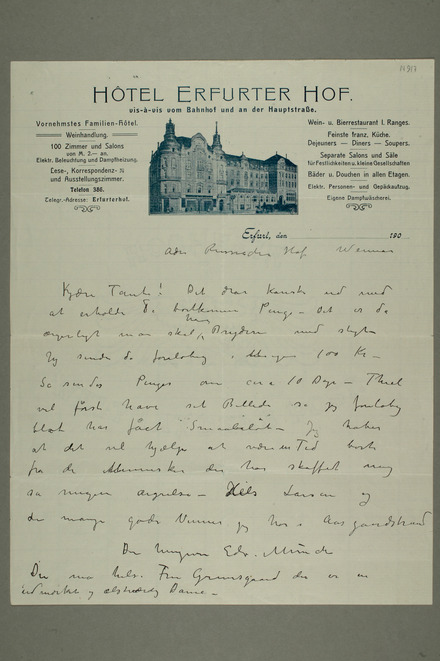 N 917
HÔTEL ERFURTER HOF.
vis-à-vis vom Bahnhof und an der Hauptstraße.
Vornehmstes Familien-Hôtel.
Weinhandlung.
100 Zimmer und Salons
von M. 2.— an.
Elektr. Beleuchtung und Dampfheizung.
Lese-, Korrespondenz-
und Ausstellungszimmer.
Telefon 386.
Telegr.-Adresse: Erfurterhof.
Wein- u. Bierrestaurant I. Ranges.
Feinste franz. Küche.
Dejeuners — Diners — Soupers.
Separate Salons und Säle
für Festlichkeiten u. kleine Gesellschaften
Bäder u. Douchen in allen Etagen.
Elektr. Personen- und Gepäckaufzug.
Eigene Dampfwäscherei.
Erfurt, den 190
Adr Russischer Hof Weimar
Kjære Tante! Det
at de bortkomne Penge – Det er da
ærgerligt man skal have Bryderi med sligt
Jeg sender da foreløbig 100 Kr –
Så sendes Penge om circa 10 Dage – Thiel
vil først have set Billede så jeg foreløbig
blot har fået Jeg håber
at det vil hjælpe at være en Tid borte
fra de Mennesker der har skaffet mig
så megen ærgrelse – Hils Larsen og
de mange gode Venner jeg har i Aasgaardstrand
Din hengivne Edv. Munch
Du må hils. Frk der er en
udmærket og elskværdig Dame –